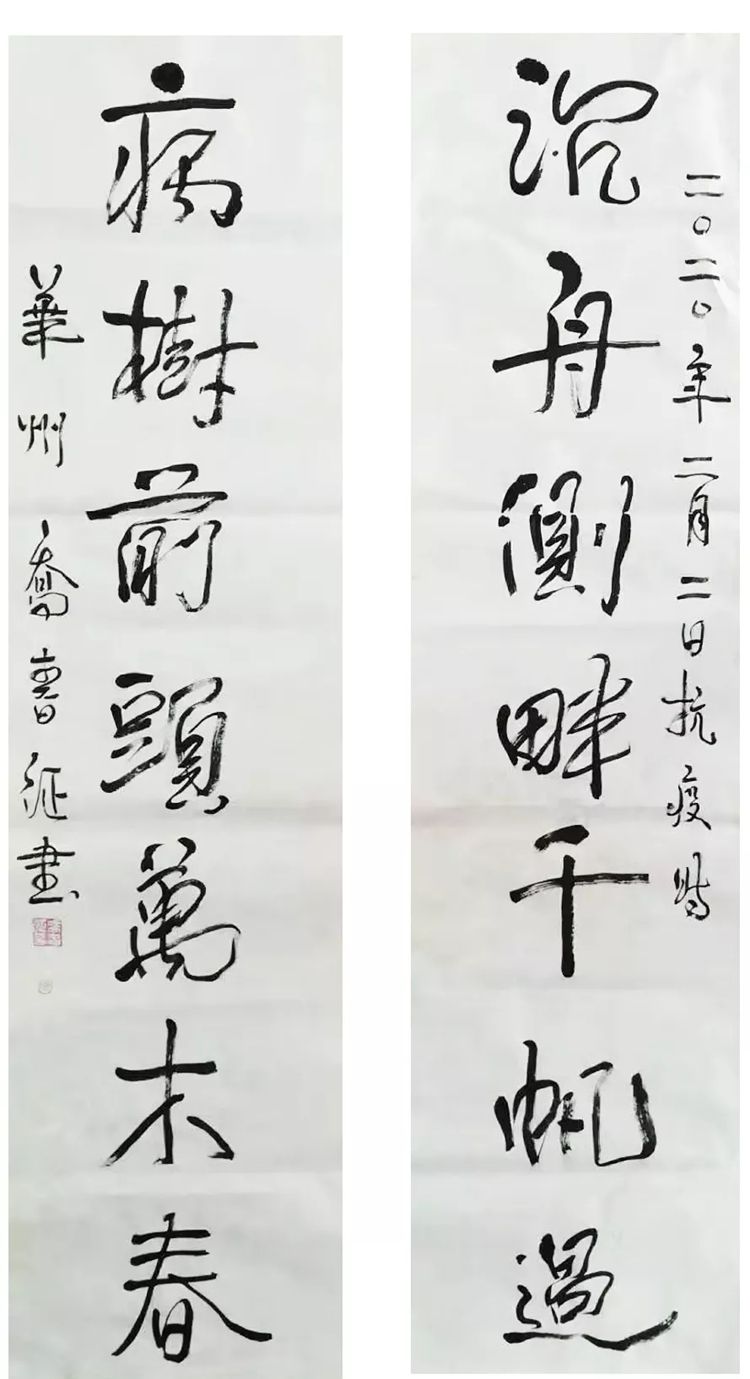 二〇二〇年二月二日抗疫時
沉舟側畔千帆過
病樹前頭萬木春
華州 喬 征書